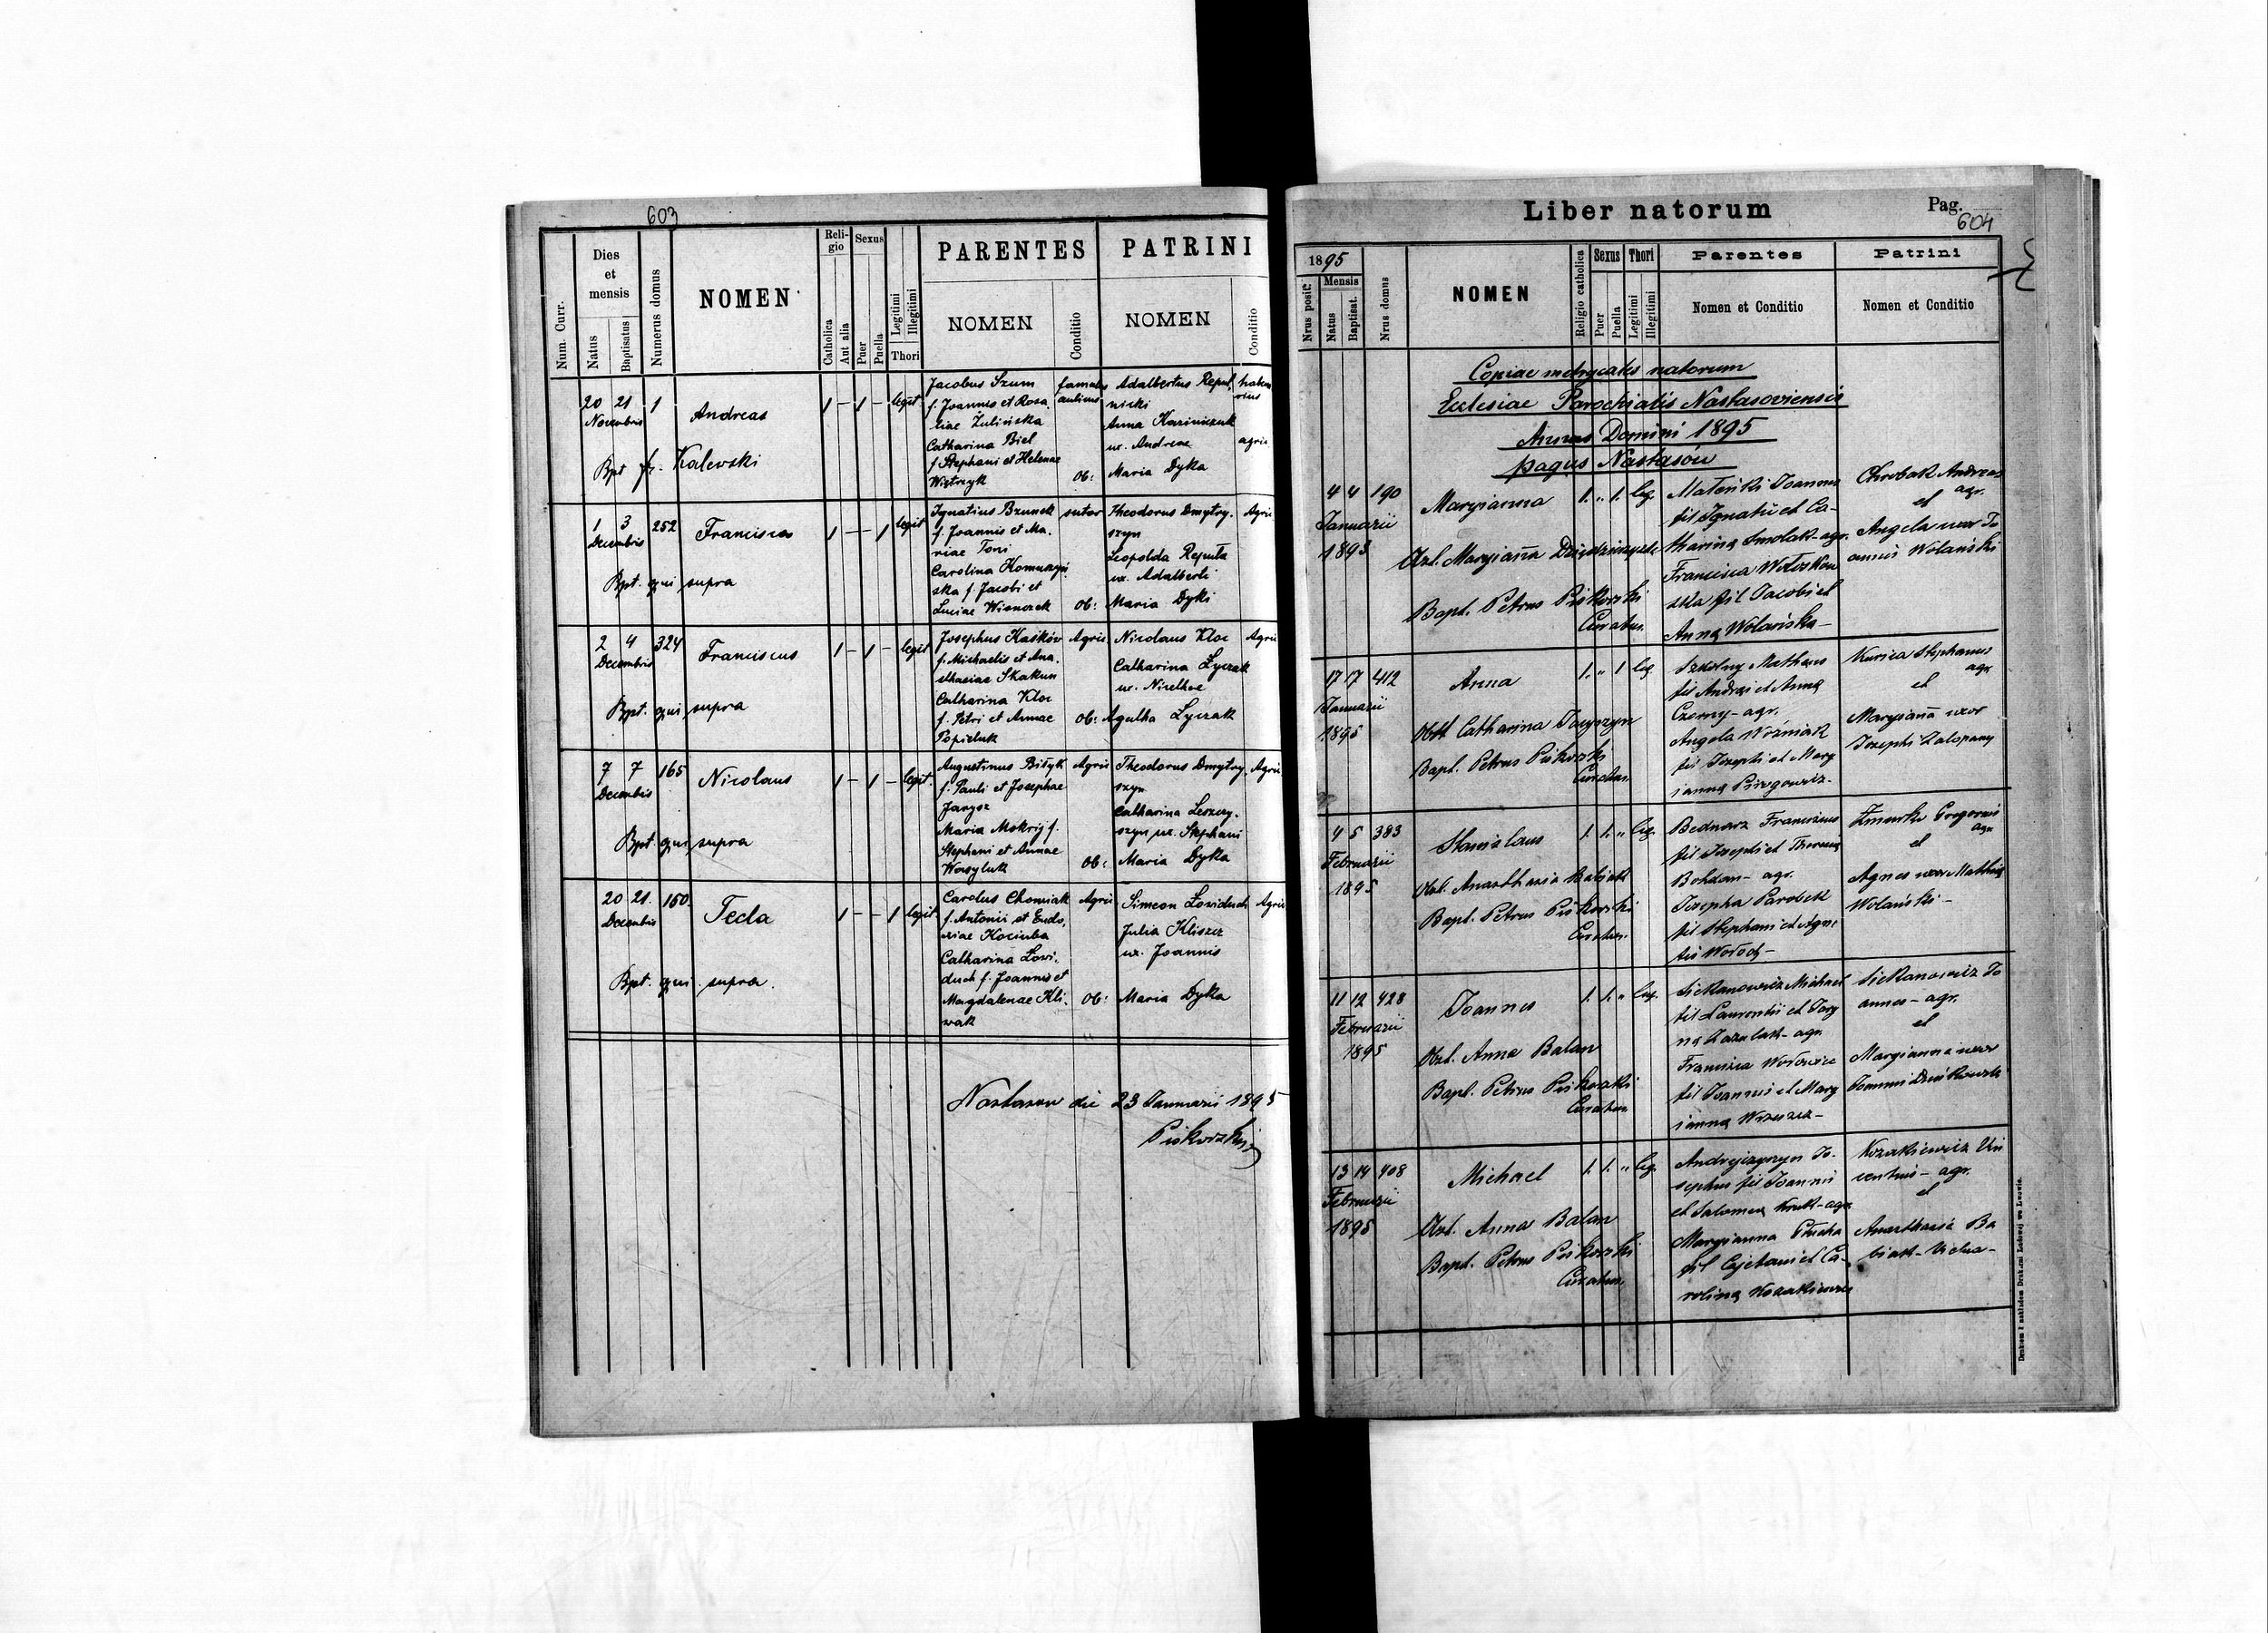 603
Num. Curr.
Dies et mensis
Natus
Baptisatus
Numerus domus
NOMEN
Religio
Catholica
Aut alia
Sexus
Puer
Puella
Legitimi
Illegitimi
Thori
PARENTES
NOMEN
Conditio
PATRINI
NOMEN
Conditio
20 21 1
Novembris
Andreas
1 – 1 – legit.
Jacobus Szum
f. Joannis et Rosa.
liae Zulińska
Catharina Biel
f. Stephani et Helenae
famulus
aulicus
Adalbertus Reput,
nicki
Anna Kaziniczuk
ux. Andreae
agric
Ob: Maria Dyka
Bpt fr. Kalewski
1 3 252
Decembris
Francisca
1 – – 1 legit
Ignatius Brumek
f. Joannis et Ma.
riae Toni
Carolina
ska f. Jacobi et
Luciae Wisnozek
sutor
Theodorus Dmytry.
szyn
Leopolda Reputa
ux. Adalberti
Agric
Ob: Maria Dyki
Bpt. qui supra
2 4 324
Decembris
Franciscus
1 – 1 – legit
Josephus Kaśków
f. Michaelis et Ana.
sthasiae Skakun
Catharina Kloc
f. Petri et Annae
Popieluk
Agric.
Nicolaus Kloc
Catharina Łyczak
ux.
Agric
Ob: Agatha Lyczak
Bpt. qui supra
7 7 165
Decembris
Nicolaus
1 – 1 – legit.
Augustinus Biłyk
f. Pauli et Josephae
Jaryor
Maria Mokrij f.
Stephani et Annae
Wasyluk
Agric
Theodorus Dmytry.
szyn
Catharina Leszczy.
szyn ux. Stephani
Agric
Ob: Maria Dyka
Bpt. qui supra
20 21 160
Decembris
Tecla
1 – – 1 legit.
Carolus Chomiak
f. Antonii et Eudo,
xiae Kociuba
Catharina Łowi.
duch f. Joannis et
Magdalenae Kli.
wak
Agric
Simeon Łowiduch
Julia Kliszcz
ux. Joannis
Agric
Ob: Maria Dyka
Bpt. qui supra.
Nastasow die 23 Januarii 1895
Piskorzkij
Liber natorum
Pag. 604
1895
Nrus posit.
Mensis
Natus
Baptisat.
Nrus domus
NOMEN
Religio catholica
Sexus
Puer
Puella
Thori
Legitimi
Illegitimi
Parentes
Nomen et Conditio
Patrini
Nomen et Conditio
Copiae metrycales natorum
Ecclesiae Parochialis Nastasoviensis
Annus Domini 1895
pagus Nastasów
4 4 190
Januarii
1893
Maryianna
1. „ 1. leg.
Obst. Maryiana
Bapt. Petrus Piskorski
Curatus.
Mateński Joannes
fil Ignatii et Ca-
tharina Smolak - agr.
Francisca Wołoskow
ska fil Jacobi et
Anna Wolańska -
Chrobak Andreas
agr.
et
Angela uxor Jo
annis Wolański
17 17 412
Januarii
1895
Anna
1. „ 1 leg
Obst Catharina
Bapt. Petrus Piskorski
Curatus.
Szkolny Matheus
fil Andrei et Anna
Czerny - agr.
Angela Woźniak
fil Josephi et Mary
ianna
Kurica Stephanus
agr.
et
Maryiana uxor
Josephi Zalopany
4 5 383
Februarii
1895
Stanislaus
1. 1. „ leg.
Obst. Anasthasia Babiak
Bapt. Petrus Piskorski
Curatus.
Bednarz Franciscus
fil Josephi et Theresia
Bohdan - agr.
Josepha Parobek
fil Stephani et Agne
tis Worod -
Żmurko Gregorius
agr.
et
Agnes uxor Mathias
Wolański -
11 12 428
Februarii
1895
Joannes
1. 1. „ leg.
Obst. Anna Balan
Bapt. Petrus Piskorski
Curatus
Siekanowicz Michael
fil Laurentii et Jary
na - agr.
Francisca
fil Joannis et Mary
ianna Wrzeszcz -
Siekanowicz Jo
annes - agr.
et
Maryianna uxor
Joannis
13 14 408
Februarii
1895
Michael
1. 1. „ leg.
Obst. Anna Balan
Bapt. Petrus Piskorski
Curatus.
Andrejczyszyn Jo-
sephus fil Joannis
et Salomea Kruk - agr.
Maryianna Płucha
fil Cajetani et Ca-
rolina Kozakiewicz
Kozakiewicz Vin
centius - agr.
et
Anasthasia Ba
biak - Vidua -
Drukiem i nakładem Drukarni Ludowej we Lwowie.